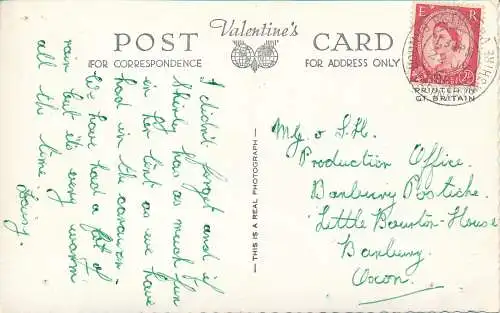 Valentine's
POST CARD
FOR CORRESPONDENCE
FOR ADDRESS ONLY
E R
PRINTED IN
GT. BRITAIN
THIS IS A REAL PHOTOGRAPH
I didn't forget and if
Shirly has as much fun
in her tent as we have
had in the caravan.
We have had a lot of
rain but its very warm
all the time
Production Office.
Banbury Postiche.
Little Bourton House
Banbury
Oxon.